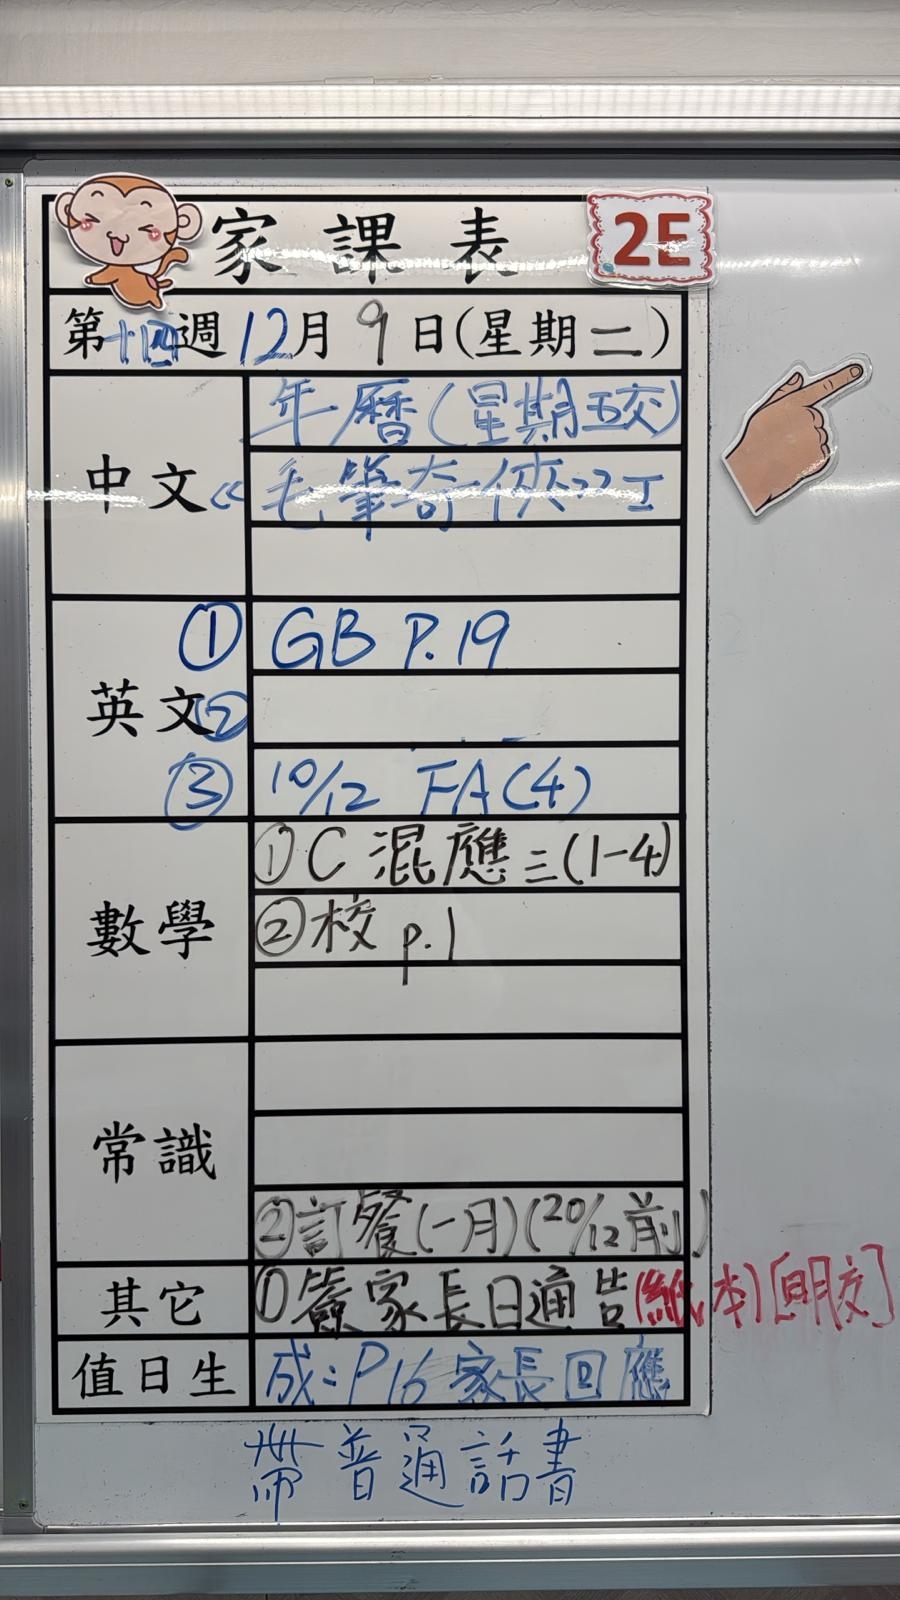 家課表 2E
第十四週 12月9日(星期二)
中文
年曆(星期五交)
《毛筆奇俠》工
英文
① GB P.19
②
③ 10/12 FA(4)
數學
① C 混應三(1-4)
② 校 p.1
常識
② 訂餐(一月)(20/12前)
其它
① 簽家長日通告(紙本)[明交]
值日生
成:P16 家長回應
帶普通話書